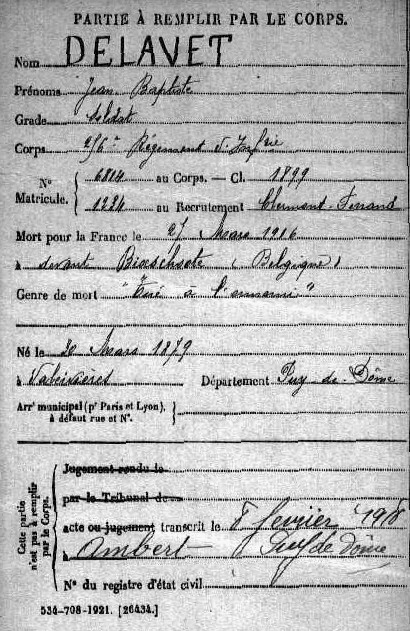 PARTIE À REMPLIR PAR LE CORPS.
Nom DELAVET
Prénoms Jean Baptiste
Grade Soldat
Corps 216e Régiment d'Infrie
N° Matricule. { 6814 au Corps. — Cl. 1899
1224 au Recrutement Clermont-Ferrand
Mort pour la France le 27 Mars 1916
à devant Bixschoote (Belgique)
Genre de mort "Tué à l'ennemi"
Né le 20 Mars 1879
à Valcivières Département Puy-de-Dôme
Arrt municipal (pr Paris et Lyon), à défaut rue et N°. {
Cette partie n'est pas à remplir par le Corps.
Jugement rendu le
par le Tribunal de
acte ou jugement transcrit le 8 février 1918
à Ambert Puy de Dôme
N° du registre d'état civil
534-708-1921. [26434.]